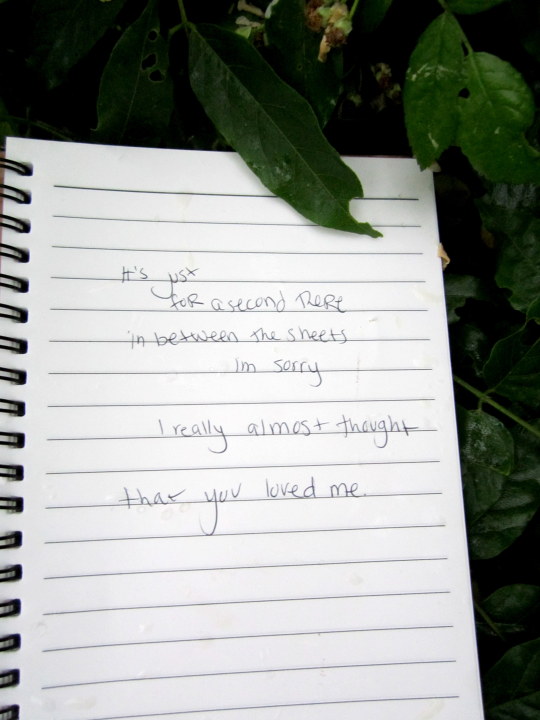 It's just
for a second there
in between the sheets
im sorry
I really almost thought
that you loved me.